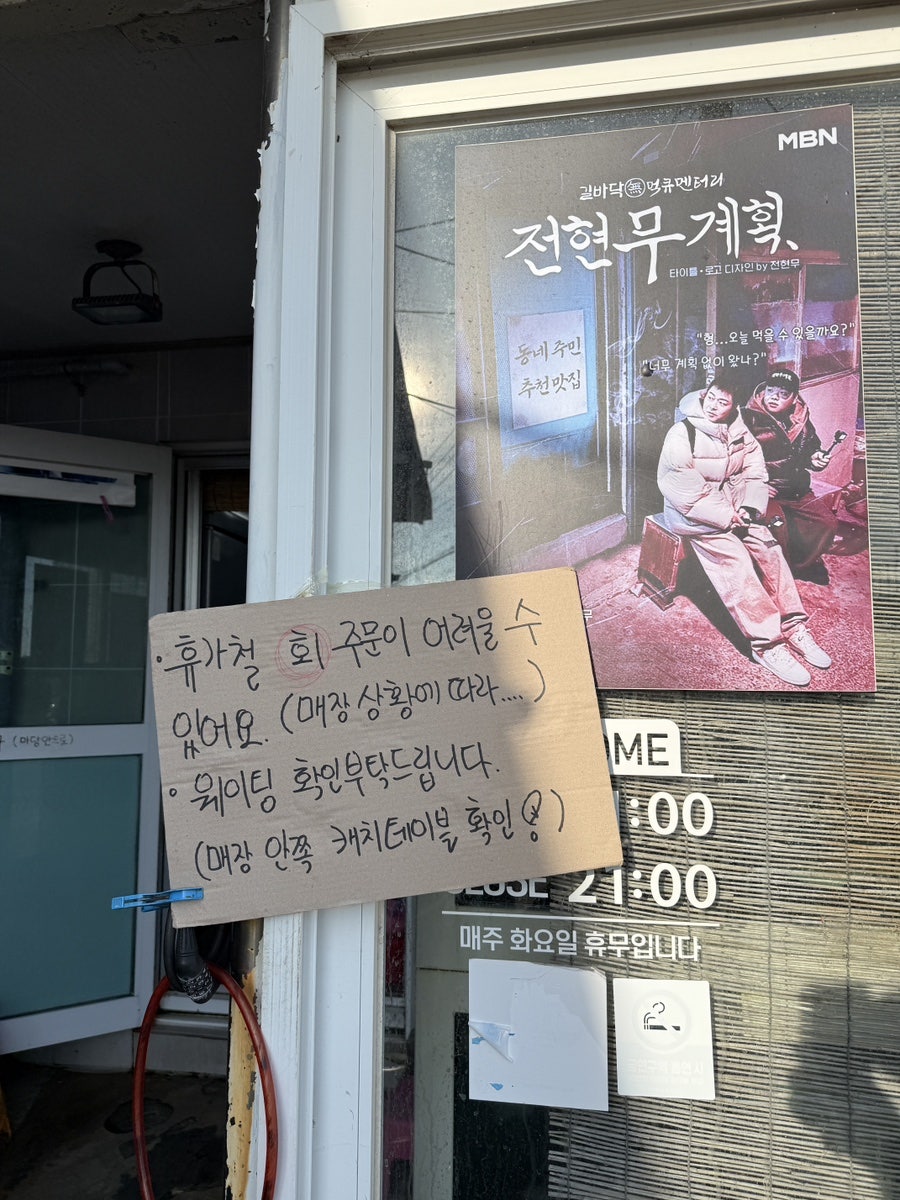 MBN
길바닥 無 먹큐멘터리
전현무계획
타이틀·로고 디자인 by 전현무
"형...오늘 먹을 수 있을까요?"
"너무 계획 없이 왔나?"
동네 주민
추천 맛집
· 휴가철 회 주문이 어려울 수
있어요. (매장 상황에 따라....)
· 웨이팅 확인부탁드립니다.
(매장 안쪽 캐치테이블 확인용)
OME
:00
CLOSE 21:00
매주 화요일 휴무입니다